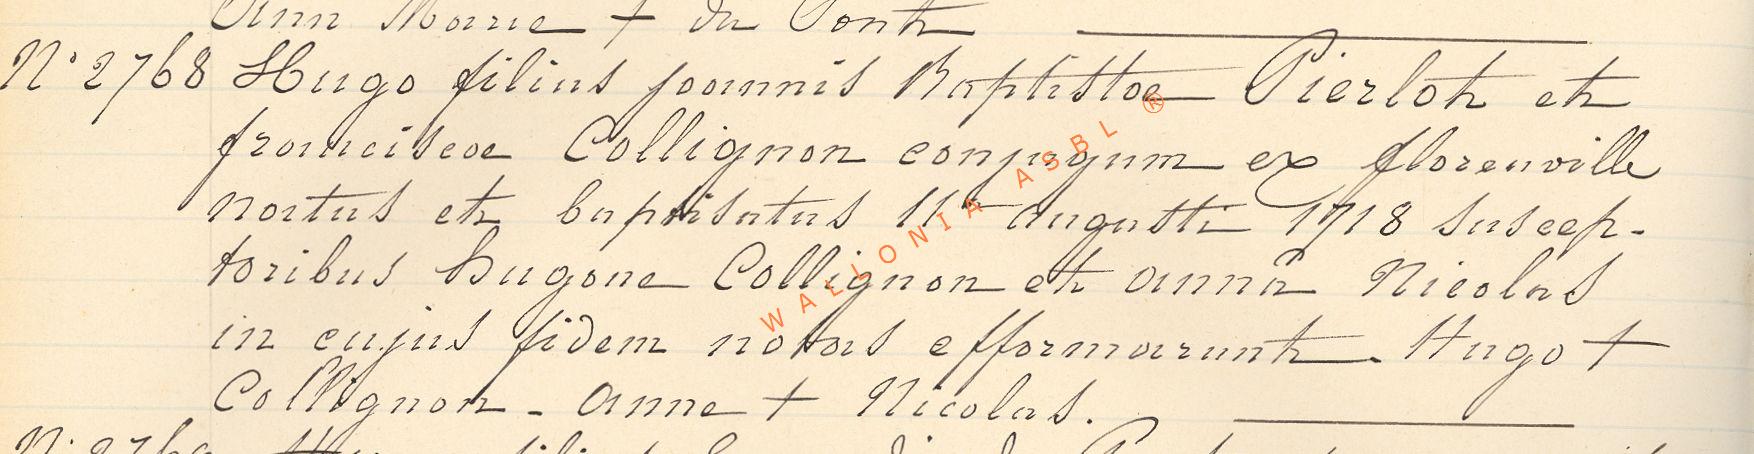 Ann Marie + du Pont
N° 2768 Hugo filius joannis Baptistae Pierlot et
franciscae Collignon conjugum ex florenville
natus et baptisatus 11a augusti 1718 suscep-
toribus hugone Collignon et anna Nicolas
in cujus fidem notas efformarunt. Hugo +
Collignon - anne + Nicolas.
WALLONIA ASBL ®